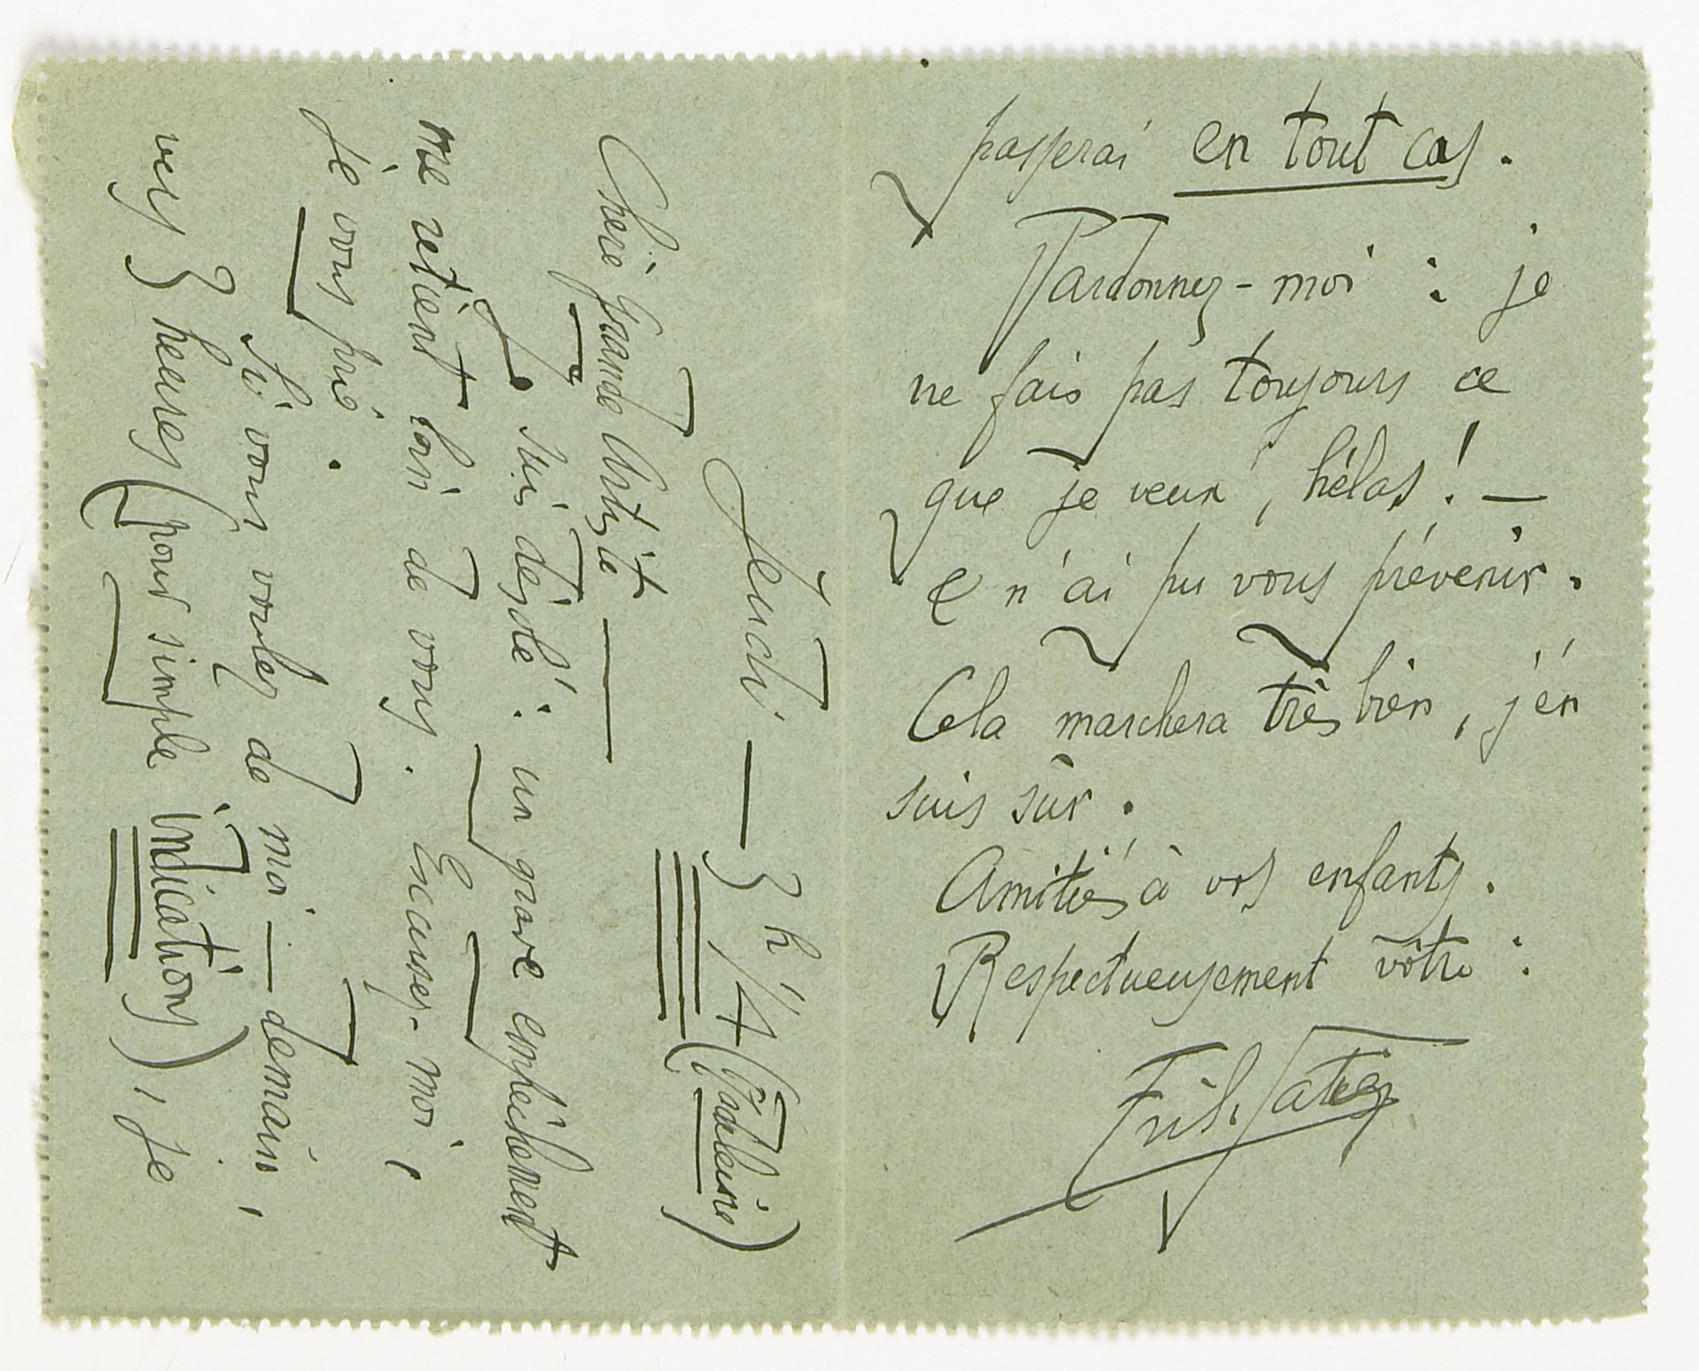 Jeudi — 3h 1/4 (Madeleine)
Chère grande Artiste —
Je suis désolé : un grave empêchement
me retient loin de vous. Excusez-moi,
je vous prie.
Si vous voulez de moi — demain,
vers 3 heures (pour simple indication), je
passerai en tout cas.
Pardonnez-moi : je
ne fais pas toujours ce
que je veux, hélas ! —
& n'ai pu vous prévenir.
Cela marchera très bien, j'en
suis sûr.
Amitiés à vos enfants.
Respectueusement vôtre :
Erik Satie